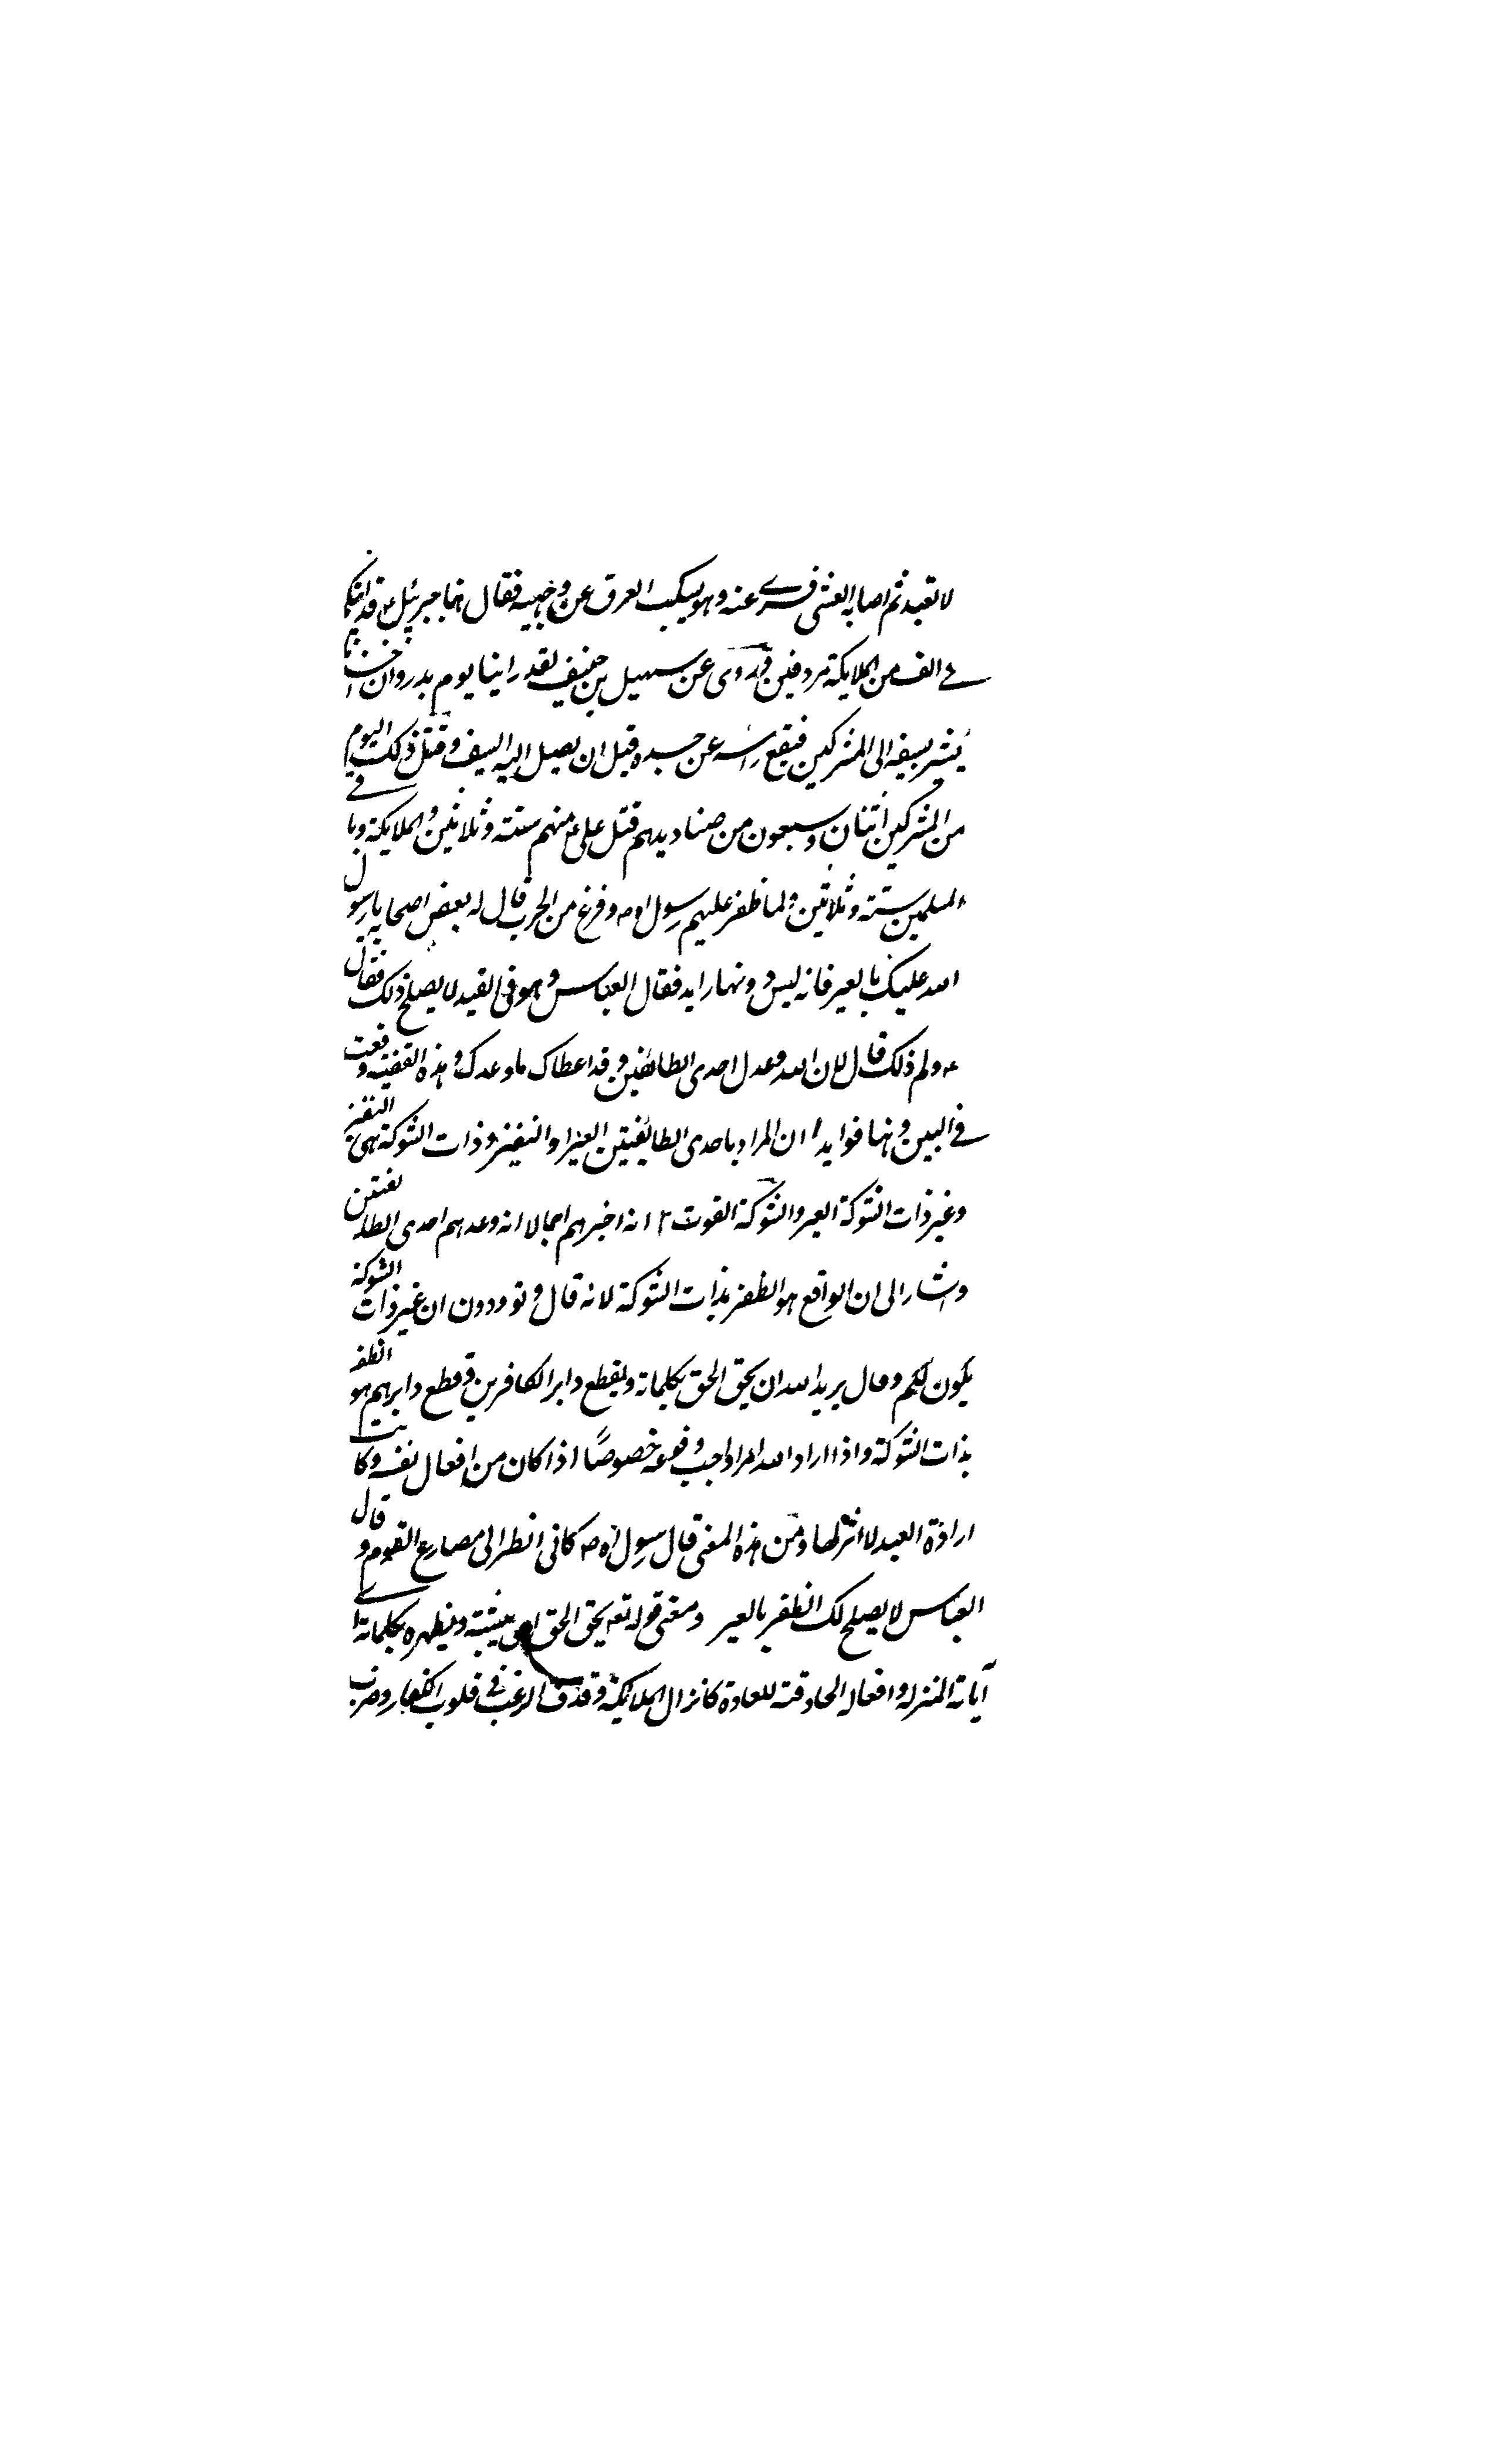 لا تعبد ثم اصابه الغشى فسرے عنه وهو يسكب العرق عن وجهه فقال هذا جبرئيل ع قد اتيكم
فے الف من الملايكة مردفين وروى عن سهيل بن حنيف لقد راينا يوم بدر وان احدنا
يشير بسيفه الى المشركين فيقع راسه عن جسده قبل ان يصل اليه السيف وقتل ذلك اليوم
من المشركين اثنان وسبعون من صناديدهم قتل على ع منهم ستة وثلاثين والملايكة وباقے
المسلمين ستة وثلاثين ولما ظفر عليهم رسول الله ص وفرغ من الحرب قال له بعض اصحابه يا رسول
الله عليك بالعير فانه ليس دونها راد فقال العباس وهو فى القيد لا يصلح ذلك فقال
ص ولم ذلك قال لان الله وعدك احدى الطائفتين وقد اعطاك ما وعدك وهذه القضية وقعت
فے البين وهنا فوايد ا ان المراد باحدى الطايفتين العير او النفير وذات الشوكة هى النفير
وغير ذات الشوكة العير والشوكة القوت ٢ انه اخبرهم اجمالا انه وعدهم احدى الطائفتين
واشار الى ان الواقع هو الظفر بذات الشوكة لانه قال وتوودون ان غير ذات الشوكة
يكون لكم وقال يريد الله ان يحق الحق بكلماته ويقطع دابر الكافرين وقطع دابرهم هو الظفر
بذات الشوكة واذا اراد الله امرا وجب وقوعه خصوصًا اذا كان من افعال نفسه وكانت
ارادة العبد لا اثر لها ومن هذه المعنى قال رسول الله ص كانى انظر الى مصارع القوم وقال
العباس لا يصلح لك الظفر بالعير ومعنى قوله تعه يحق الحق اى يثبته ويظهره بكلماته اے
آياته المنزله وافعاله الخارقة للعادة كانزال الملائكة وقذف الرعب فى قلوب الكفار وضرب